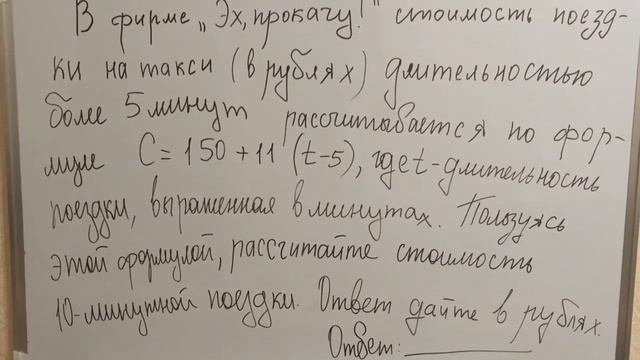 В фирме „Эх, прокачу!" стоимость поезд-
ки на такси (в рублях) длительностью
более 5 минут рассчитывается по фор-
муле C = 150 + 11 (t - 5), где t - длительность
поездки, выраженная в минутах. Пользуясь
этой формулой, рассчитайте стоимость
10-минутной поездки. Ответ дайте в рублях.
Ответ: ________